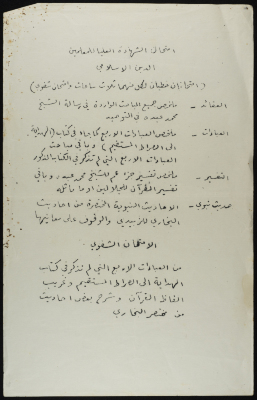 امتحان الشهادة العليا للمعلمين
الدين الاسلامي
(امتحانان خطيان لكل منهما ثلاث ساعات وامتحان شفوي)
العقائد - ملخص جميع المباحث الواردة في رسالة الشيخ
محمد عبده في التوحيد
العبادات - ملخص العبادات الاربع كما جاء في كتاب (الهداية
الى الصراط المستقيم) وما في مباحث
العبادات الاربع التي لم تذكر في الكتاب المذكور
التفسير - ملخص تفسير جزء عم للشيخ محمد عبده وما في
تفسير القرآن للجلالين او ما ماثله
حديث نبوي - الاحاديث النبوية المختصرة من احاديث
البخاري للزبيدي والوقوف على معانيها
الامتحان الشفوي
من العبادات الاربع التي لم تذكر في كتاب
الهداية الى الصراط المستقيم وغريب
الفاظ القرآن وشرح بعض احاديث
من مختصر البخاري